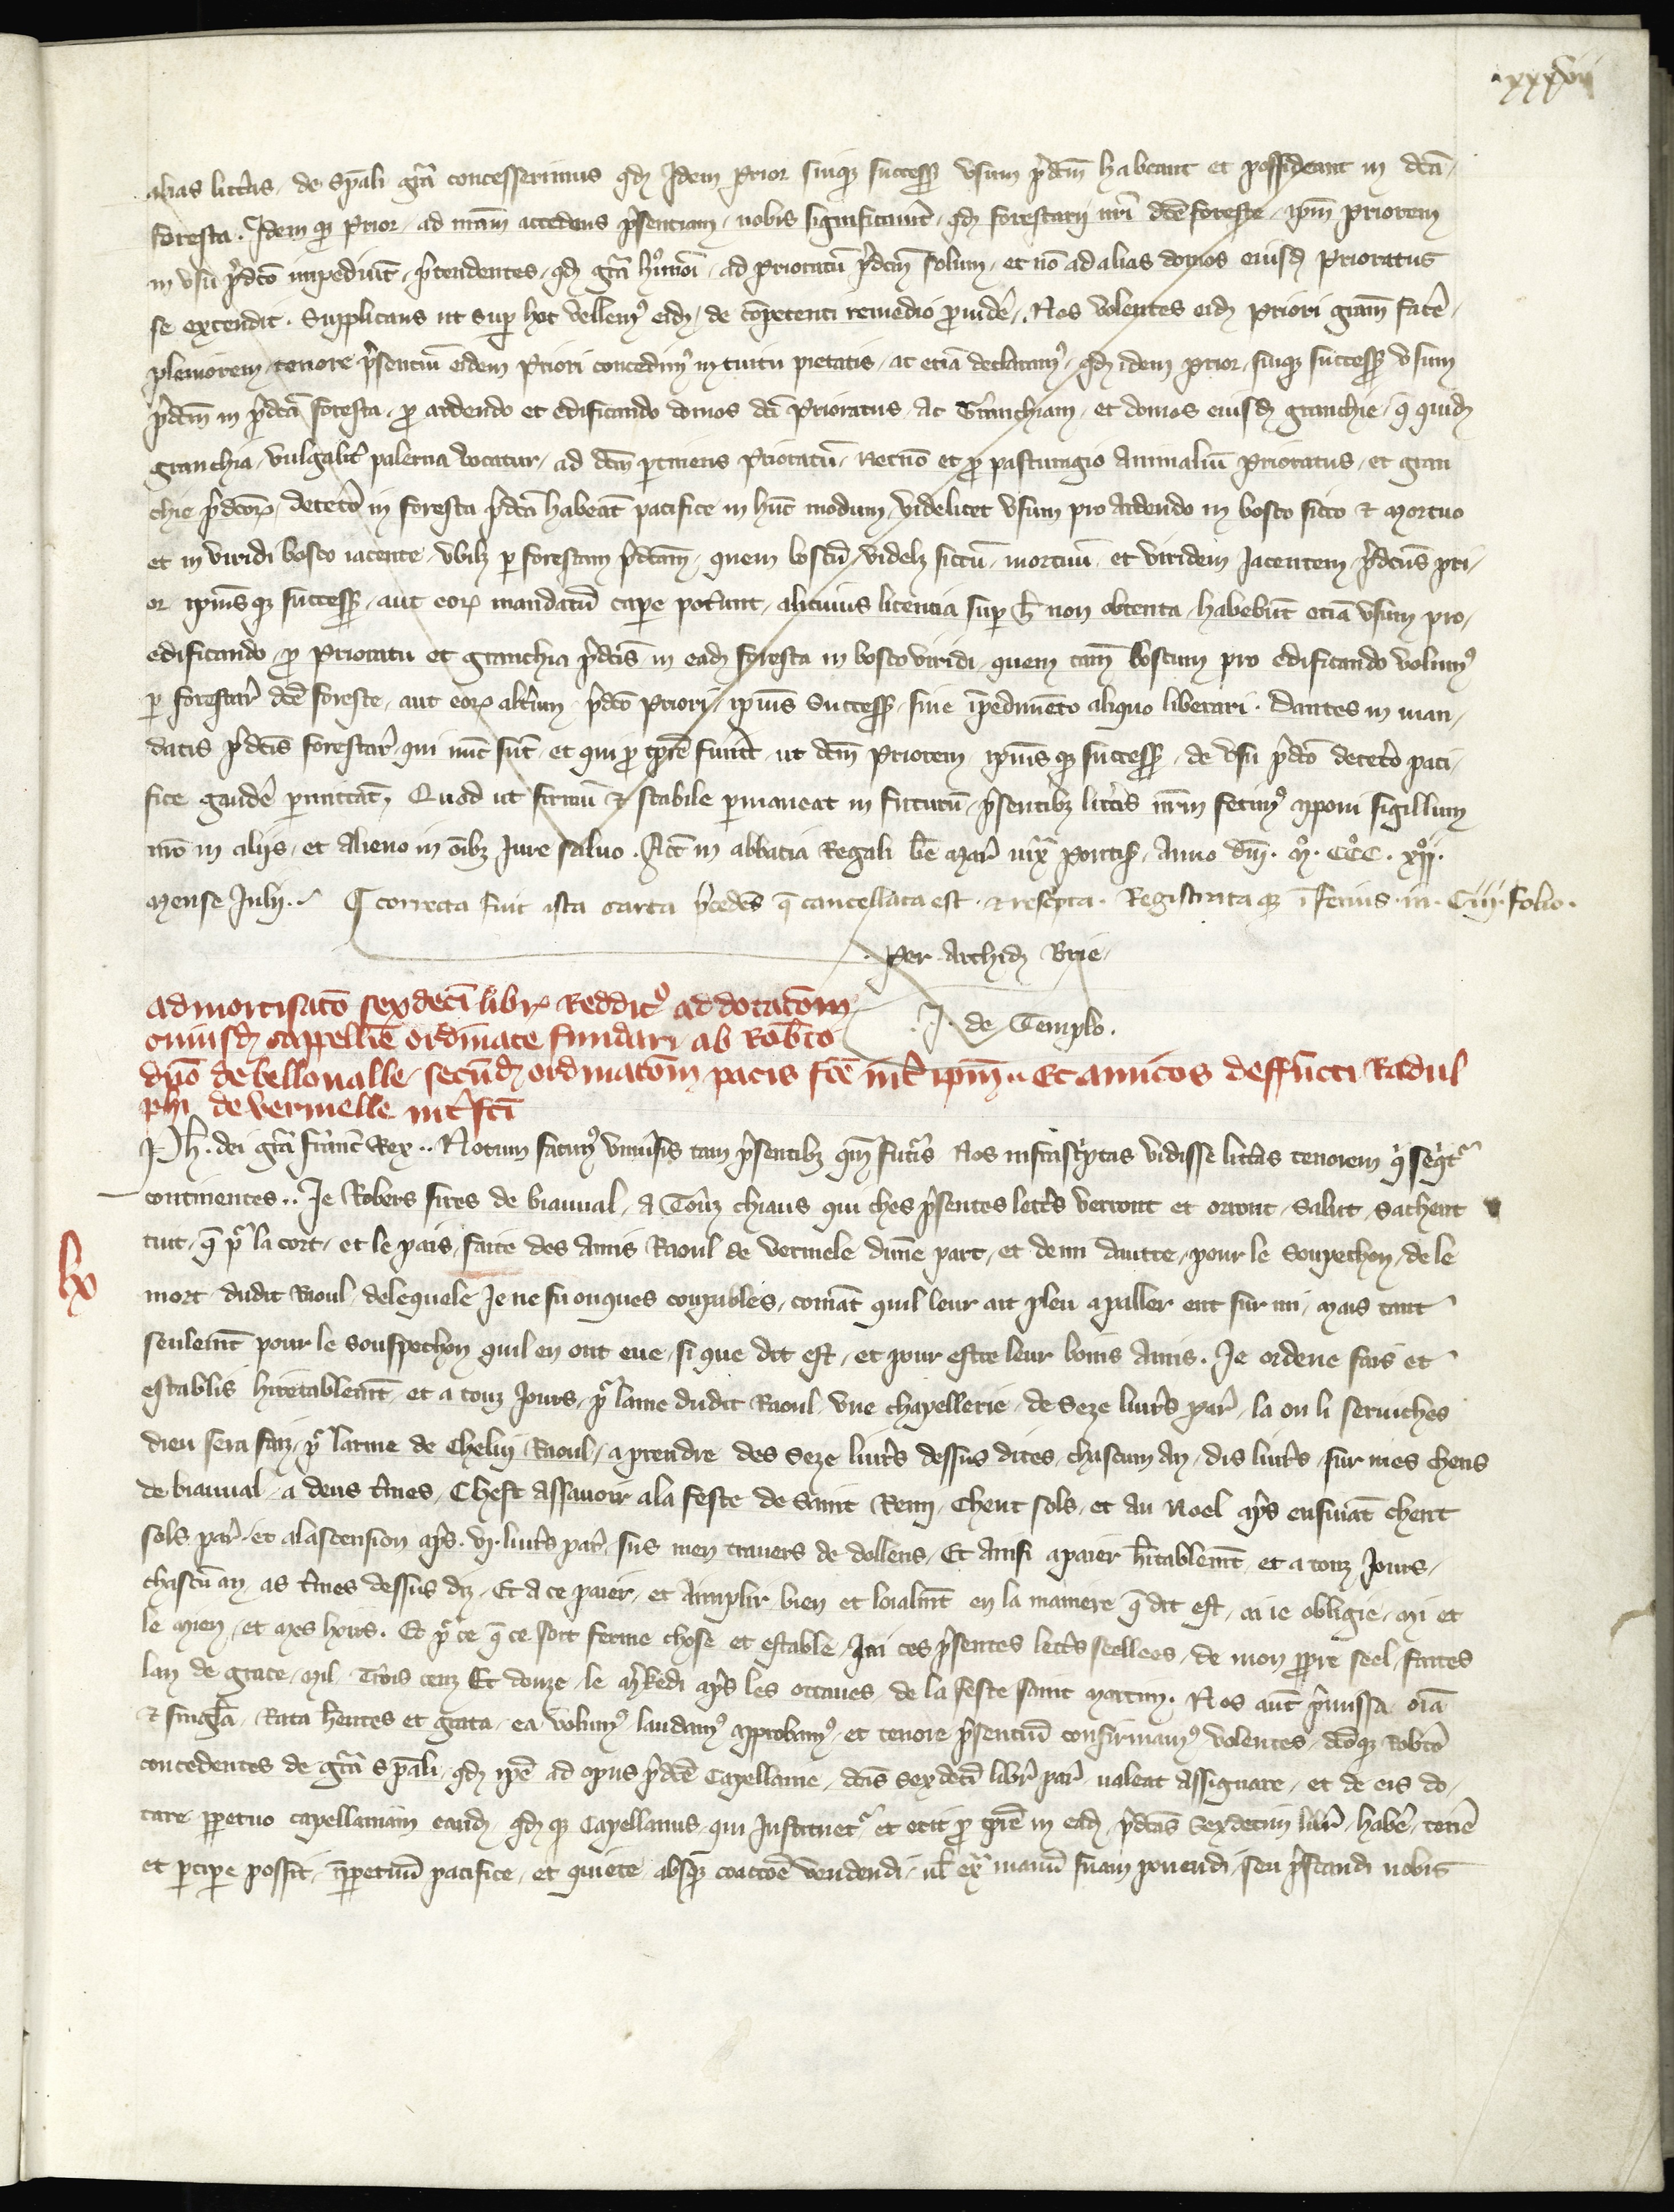 xxxvii
alias litt̾as, de sp̄ali gr̄a concesserimus qd̄ Idem Prior suiqꝫ success̄ usum p̄dc̄m habeant et possideant in dc̄a
foresta. Idem qꝫ Prior, ad nrām accedens p̄senciam, nobis significauit, qd̄ forestarij nr̄i dc̄e foreste, ip̄m priorem
in usu p̄dc̄o impediūt, p̄tendentes, qd̄ gr̄a hꝰmōi, ad prioratū p̄dc̄m solum, et nō ad alias domos eiusd̄ Prioratus
se extendit. Supplicans ut sup̱ hoc vellemꝰ eid̄, de cōpetenti remedio ꝓuidēr, Nos volentes eid̄ priori grām facēr
pleniorem, tenore p̄senciū eidem Priori concedimꝰ intuitu pietatis, ac eciā declaramꝰ, qd̄ idem prior, suiqꝫ success̄ usum
p̄dc̄m in p̄dc̄a foresta, ꝓ ardendo et edificando domos dc̄i Prioratus, ac Granchiam, et domos eiusd̄ granchie, q̄ quid̄
granchia, vulgalit̾ palerna vocatur, ad dc̄m ꝑtinens Prioratū, Necnō et ꝓ pasturagio Animaliū Prioratus, et gran
chie p̄dc̄oꝝ, decet̾o in foresta p̄dc̄a habeāt pacifice in hūc modum, videlicet usum pro Ardendo in bosco sicco ⁊ Mortuo
et in viridi bosco iacente, ubilꝫ ꝑ forestam p̄dc̄am, quem boscū, videlꝫ siccū, mortuū, et viridem Jacentem, p̄dc̄us pri-
or ipiusqꝫ success̄, aut eoꝝ mandatū cape pot̾unt, alicuius licencia sup̱ h̄ non obtenta, habebūt eciā usum pro
edificando, ꝓ Prioratu et granchia p̄dc̄is in ead̄ foresta in bosco viridi, quem tam̄ boscum pro edificando volumꝰ
ꝑ forestar̄ dc̄e foreste, aut eoꝝ alt̾um, p̄dc̄o Priori, ipius Success̄, sine īpedimēto aliquo liberari. Dantes in man-
datis p̄dc̄is forestar̄, qui nūc sūt, et qui ꝓ tp̄re fuer̄t, ut dc̄m Priorem, ipiusqꝫ success̄, de usu p̄dc̄o decet̾o paci-
fice gaudēr ꝑmittāt, Quod ut firmū ⁊ stabile ꝑmaneat in futurū, p̄sentibꝫ litt̾is nrm̄ fecimꝰ apponi sigillum
nr̄o in alijs, et Alieno in ōibꝫ Iure Saluo. Act̄ in abbatia Regali bē Mar̄ iuxᵃ Pontis̄, Anno dn̄i. Mº. CCCº. xijº.
Mense Julij. ¶ correcta fuit ista carta p̄cedēs q̄ cancellata est. ⁊ rescripta. Registrataqꝫ īferius. in. Ciiij. folio.
Per Archid̄ Brie.
admortisatō sexdecī libr̄ Reddit̾ꝰ ad dotatōm
cuiusd̄ cappellēie ordinate fundari ab Rob̄to
. J. de Templo.
dn̄o de bellaualle, secūd̄ ordinatōm pacis fc̄e int̾ ip̄m.. Et amicos deffūcti Radul
phi de vermelle int̾fc̄i
Ph̄. dei gr̄a francᵉ Rex.. Notum facimꝰ uniu̾sis tam p̄sentibꝫ qm̄ fut̾is Nos infrascp̄tas vidisse litt̾as tenorem q̄ seqit̾ᵃ
continentes.. Je Robers sires de biauual, A Touz chiaus qui ches p̄sentes lett̾s verront et orront, Salut, Sachent
tuit, q̄ pᵒ la cort, et le pais, faite des Amis Raoul de vermele dune part, et de mi dautre, pour le Soupechon, de le
lx
mort dudit Raoul, delequele Je ne fu onques coupables, comāt quil leur ait pleu apaller ent sur mi, mais tant
seulemt̄ pour le Souspechon quil en ont eue, si que dit est, et pour estre leur bons Amis. Je ordene fais et
establis hiretablemt̄, et a touz Jours, pᵒ lame dudit Raoul, une chapellerie, de Seze liur̾s par̄, la ou li seruiches
dieu sera faiz, pᵒ larme de Cheluj Raoul, a prendre des Seze liur̾s dessus dites, chascun An, dis liur̾s, sur mes chens
de biauual, a deus t̾mes, Chest Assauoir a la feste de Saint Remi, Chent sols, et Au Noel ap̄s ensiuāt chent
sols par̄, et alascension ap̄s. vj. liur̾s par̄, sus men trauers de dollens, Et Ainsi apaier h̾itablemt̄, et a touz Jours,
chascū an, as t̾mes dessus diz, Et a ce paier, et Aimplir bien et loialmt̄ en la maniere q̄ dit est, ai ie obligie, Mi et
le Mien, et Mes hoirs. Et pᵒ ce q̄ ce soit ferme chose et estable, Jai ces p̄sentes lett̾s seellees, de mon ꝓpre seel, faites
lan de grace, Mil, Trois cenz Et douze, le m̾kedi ap̄s les octaues, de la feste saint Martin. Nos aūt p̄missa oīa
⁊ singl̄a, Rata hēntes et grata, ea volumꝰ laudamꝰ approbamꝰ, et tenore p̄senciū confirmamꝰ, volentes, dc̄oqꝫ Robt̾o
concedentes de gr̄a sp̄ali, qd̄ ip̄e ad opus p̄dc̄e Capellanie, dc̄as sexdecī libr̄ par̄ valeat Assignare, et de eis do-
tare ꝑpetuo capellaniam eand̄, qd̄qꝫ Capellanus, qui Instituet̾ᵃ et erit ꝓ tp̄re in ead̄, p̄dc̄as Sexdecim libr̄, habēr, tenēr
et ꝑcipe possit, īꝑpetuū pacifice, et quiete, absqꝫ coactōe vendendi, ul̄ exᵃ manū suam ponendi, seu p̄standi nobis